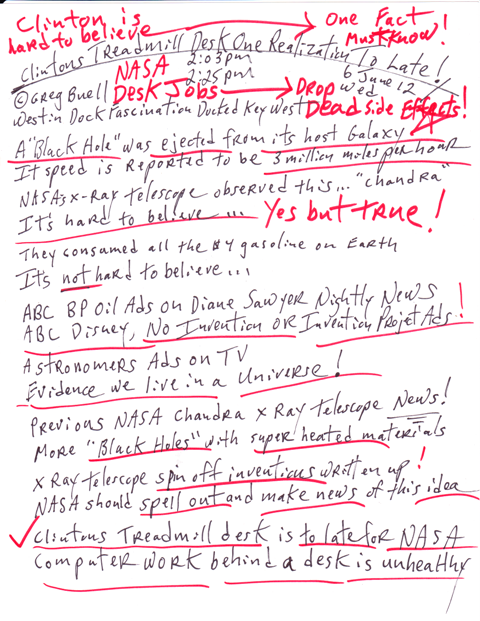 Clinton is
hard to believe
One Fact
Must Know!
Clintons Treadmill Desk One Realization To Late!
NASA 2:03pm
Desk Jobs 2:25pm
Drop
Dead Side Effects!
6 June 12
Wed
© Greg Buell
Westin Dock Fascination Docked Key West
A "Black Hole" was ejected from its host Galaxy
It speed is Reported to be 3 million miles per hour
NASA's x-Ray telescope observed this... "Chandra"
It's hard to believe... Yes but true!
They consumed all the $4 gasoline on Earth
It's not hard to believe...
ABC BP Oil Ads on Diane Sawyer Nightly News
ABC Disney, No Invention or Invention Projet Ads!
Astronomers Ads on TV
Evidence we live in a Universe!
Previous NASA Chandra x Ray telescope News!
More "Black Holes" with super heated materials
x Ray telescope spin off inventions written up!
NASA should spell out and make news of this idea
Clintons Treadmill desk is to late for NASA
Computer work behind a desk is unhealthy